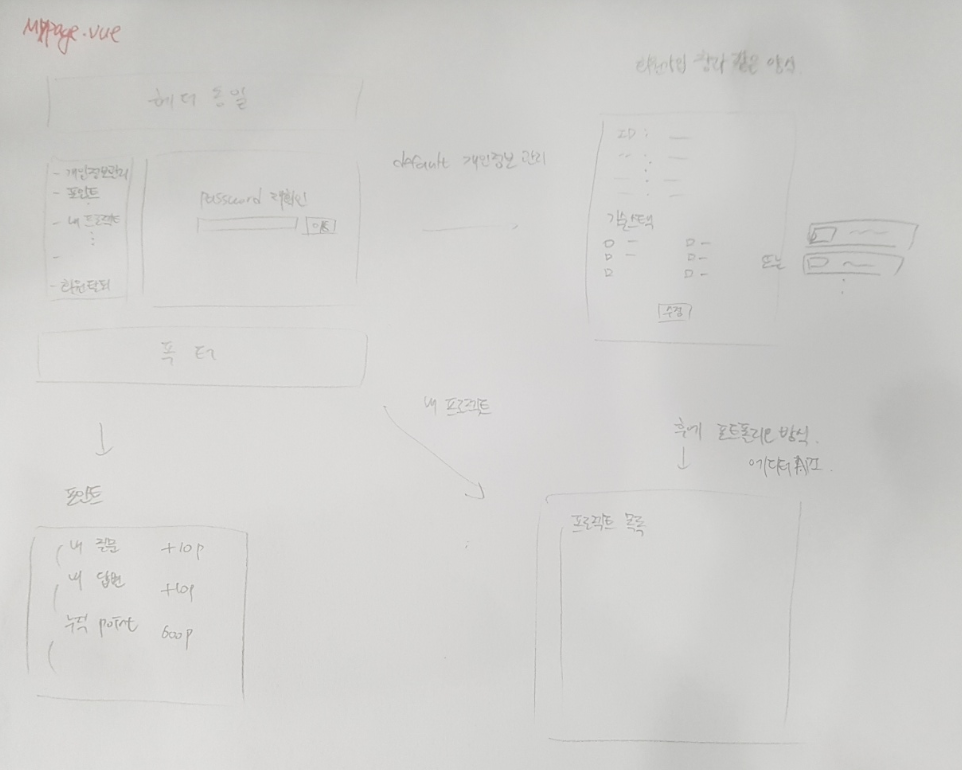 Mypage.vue
헤더 동일
- 개인정보관리
- 포인트
- 내 프로젝트
- 회원탈퇴
password 재확인
OK
푸터
default 개인정보 관리
회원가입 창과 같은 양식
ID :
기술스택
수정
또는
포인트
내 질문 +10p
내 답변 +10p
누적 point 600p
내 프로젝트
후에 포트폴리오 방식.
프로젝트 목록